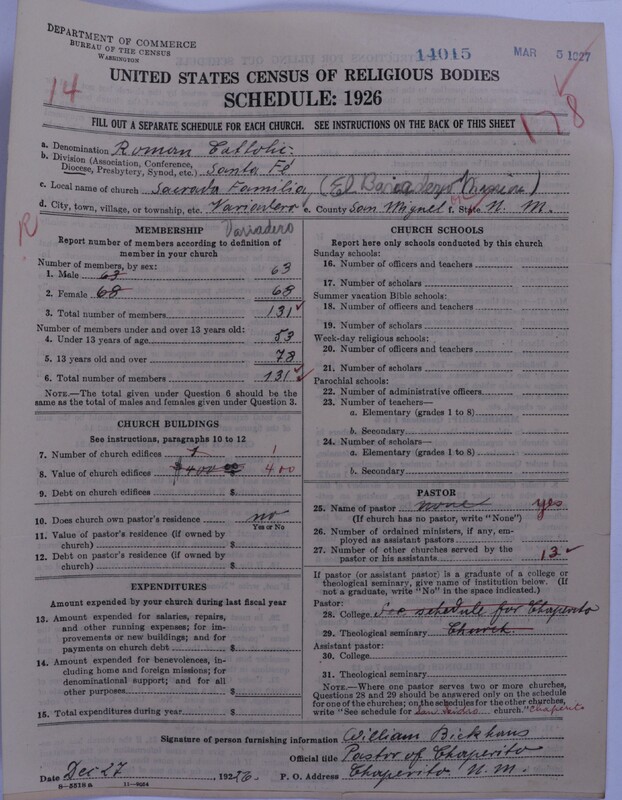 DEPARTMENT OF COMMERCE
BUREAU OF THE CENSUS
WASHINGTON
14015 MAR 5 1927
UNITED STATES CENSUS OF RELIGIOUS BODIES
SCHEDULE: 1926
14
178
FILL OUT A SEPARATE SCHEDULE FOR EACH CHURCH. SEE INSTRUCTIONS ON THE BACK OF THIS SHEET
a. Denomination Roman Catholic
b. Division (Association, Conference,
Diocese, Presbytery, Synod, etc.) Santa Fé
c. Local name of church Sacrada Familia (El Mission)
d. City, town, village, or township, etc. Variadero e. County San Miguel f. State N. M.
R
Variadero
MEMBERSHIP
Report number of members according to definition of
member in your church
Number of members, by sex:
1. Male 63 63
2. Female 68 68
3. Total number of members 131
Number of members under and over 13 years old:
4. Under 13 years of age 53
5. 13 years old and over 78
6. Total number of members 131
NOTE.—The total given under Question 6 should be the
same as the total of males and females given under Question 3.
CHURCH BUILDINGS
See instructions, paragraphs 10 to 12
7. Number of church edifices 1 1
8. Value of church edifices $400 00 400
9. Debt on church edifices $
10. Does church own pastor's residence no
Yes or No
11. Value of pastor's residence (if owned by
church) $
12. Debt on pastor's residence (if owned by
church) $
EXPENDITURES
Amount expended by your church during last fiscal year
13. Amount expended for salaries, repairs,
and other running expenses; for im-
provements or new buildings; and for
payments on church debt $
14. Amount expended for benevolences, in-
cluding home and foreign missions; for
denominational support; and for all
other purposes $
15. Total expenditures during year $
CHURCH SCHOOLS
Report here only schools conducted by this church
Sunday schools:
16. Number of officers and teachers
17. Number of scholars
Summer vacation Bible schools:
18. Number of officers and teachers
19. Number of scholars
Week-day religious schools:
20. Number of officers and teachers
21. Number of scholars
Parochial schools:
22. Number of administrative officers
23. Number of teachers—
a. Elementary (grades 1 to 8)
b. Secondary
24. Number of scholars—
a. Elementary (grades 1 to 8)
b. Secondary
PASTOR
25. Name of pastor none yes
(If church has no pastor, write "None")
26. Number of ordained ministers, if any, em-
ployed as assistant pastors
27. Number of other churches served by the
pastor or his assistants 13
If pastor (or assistant pastor) is a graduate of a college or
theological seminary, give name of institution below. (If
not a graduate, write "No" in the space indicated.)
Pastor:
28. College See schedule for Chaperito
29. Theological seminary Church
Assistant pastor:
30. College
31. Theological seminary
NOTE.—Where one pastor serves two or more churches,
Questions 28 and 29 should be answered only on the schedule
for one of the churches; on the schedules for the other churches,
write "See schedule for San Isidro church." Chaperito
Signature of person furnishing information William Bickhaus
Official title Pastor of Chaperito
Date Dec 27 1926. P. O. Address Chaperito N. M.
8-5518a 11-9264